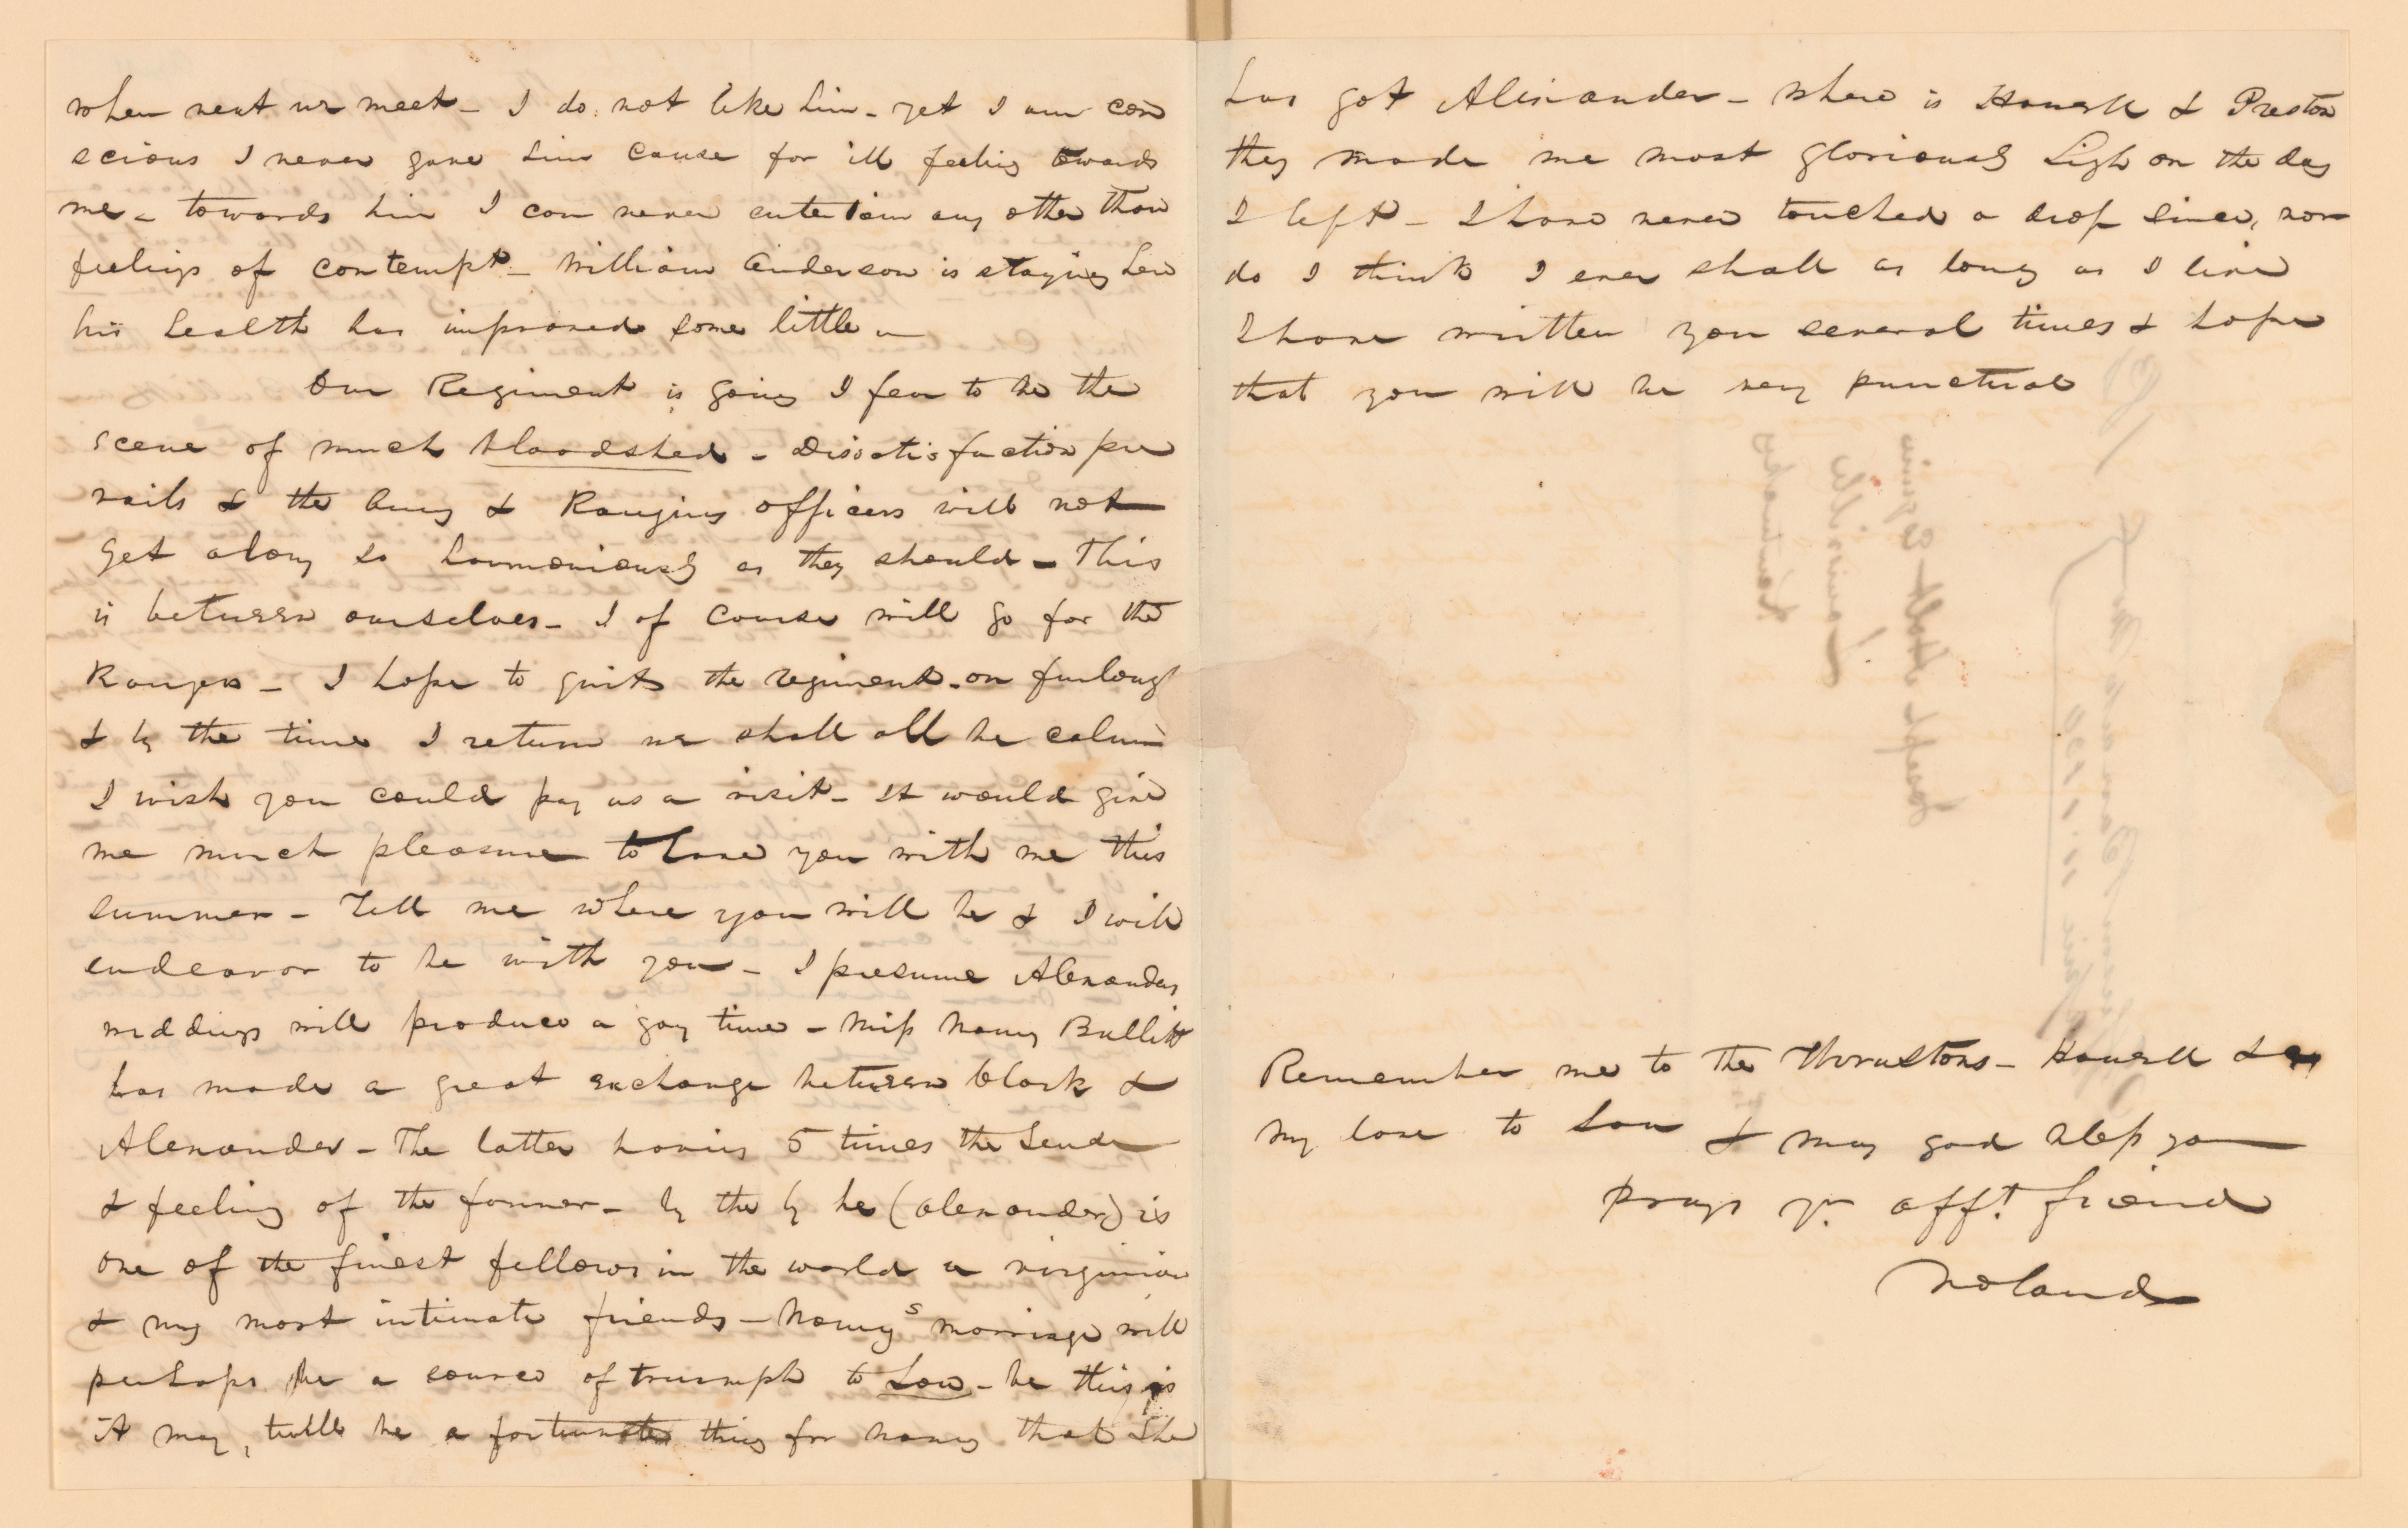 when next we meet – I do not like him – yet I am con
scious I never gave him cause for ill feeling towards
me – towards him I can never entertain any other than
feelings of contempt – William Anderson is staying here
his health has improved some little –
Our Regiment is going I fear to be the
scene of much bloodshed – Dissatisfaction pre
vails & the Army & Ranging officers will not
get along so harmoniously as they should – This
is between ourselves – I of course will go for the
Rangers – I hope to quit the regiment – on furlough
& by the time I return we shall all be calm
I wish you could pay us a visit – It would give
me much pleasure to have you with me this
summer – Tell me where you will be & I will
endeavor to be with you – I presume Alexanders
weddings will produce a gay time – Miss Nancy Bullitt
has made a great exchange between Clark &
Alexander – The latter having 5 times the
& feeling of the former – by the by he (Alexander) is
one of the finest fellows in the world a virginian
& my most intimate friends – Nancys marriage will
perhaps be a source of triumph to Lou – be this as
it may, twill be a fortunate thing for Nancy that she
has got Alexander – Where is Howell & Preston
they made me most gloriously high on the day
I left – I have never touched a drop since, nor
do I think I ever shall as long as I live
I have written you several times & hope
that you will be very punctual
Remember me to the Thrustons – Howell &
my love to Lou & may god bless you
prays yr. afft. friend
Noland